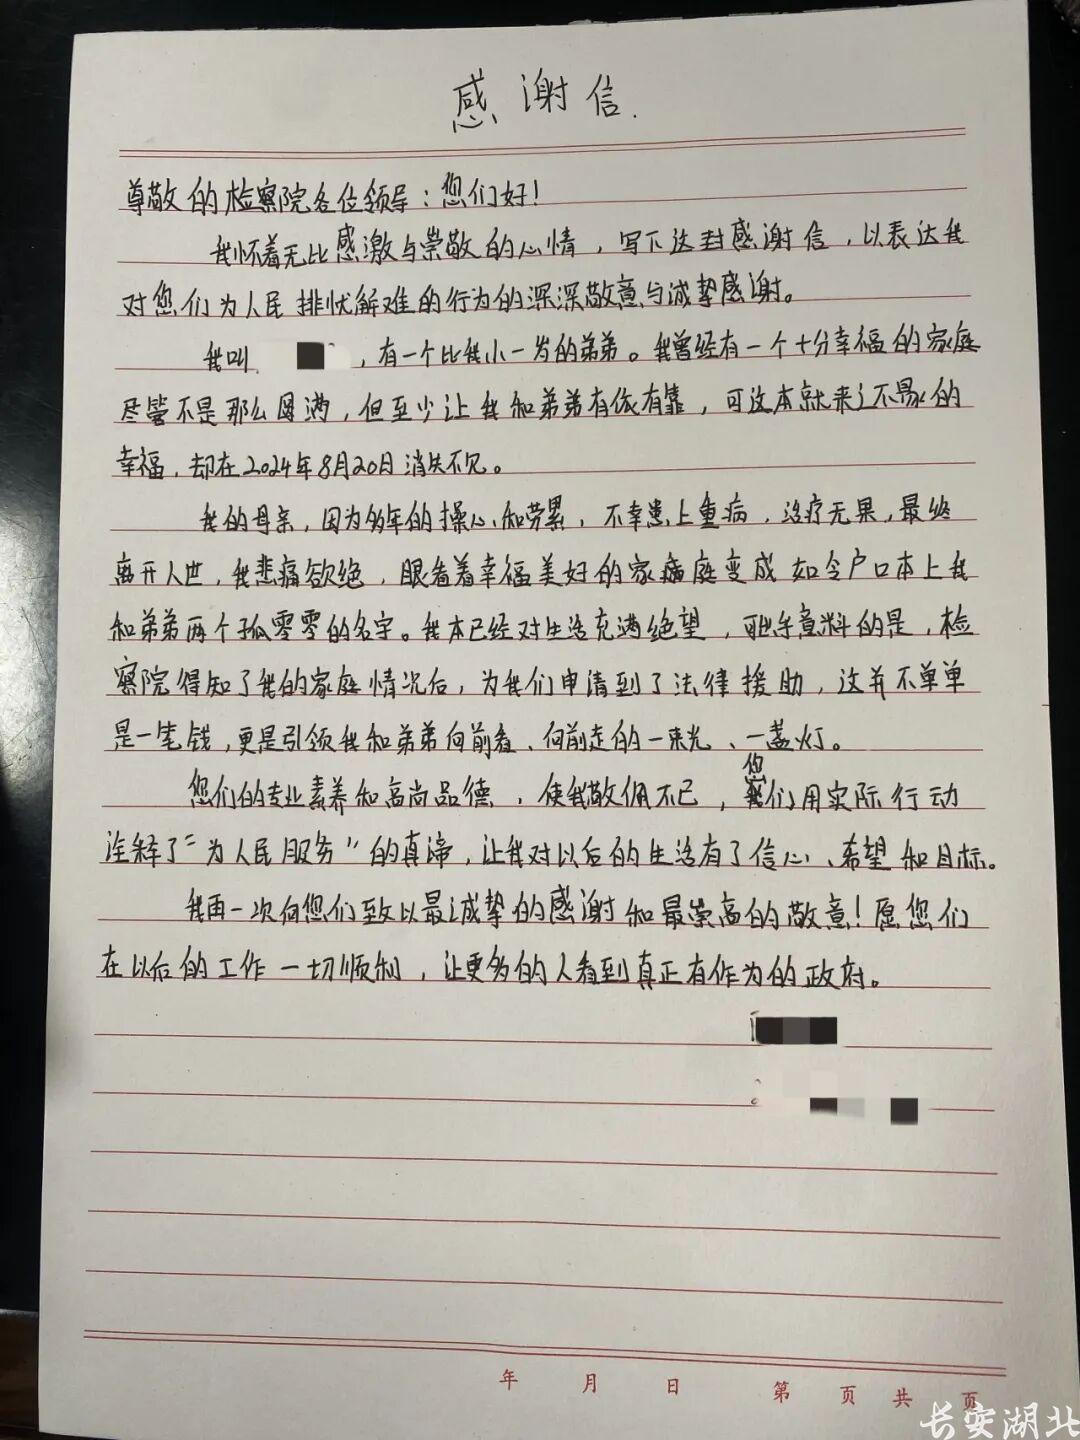 感谢信.
尊敬的检察院各位领导：您们好！
我怀着无比感激与崇敬的心情，写下这封感谢信，以表达我
对您们为人民排忧解难的行为的深深敬意与诚挚感谢。
我叫，有一个比我小一岁的弟弟。我曾经有一个十分幸福的家庭
尽管不是那么圆满，但至少让我和弟弟有依有靠，可这本就来之不易的
幸福，却在2024年8月20日消失不见。
我的母亲，因为多年的操心和劳累，不幸患上重病，治疗无果，最终
离开人世，我悲痛欲绝，眼看着幸福美好的家庭变成如今户口本上我
和弟弟两个孤零零的名字。我本已经对生活充满绝望，可出乎意料的是，检
察院得知了我的家庭情况后，为我们申请到了法律援助，这并不单单
是一笔钱，更是引领我和弟弟向前看、向前走的一束光、一盏灯。
您们的专业素养和高尚品德，使我敬佩不已，您们用实际行动
诠释了“为人民服务”的真谛，让我对以后的生活有了信心、希望和目标。
我再一次向您们致以最诚挚的感谢和最崇高的敬意！愿您们
在以后的工作一切顺利，让更多的人看到真正有作为的政府。
年 月 日 第 页 共 页
长安湖北